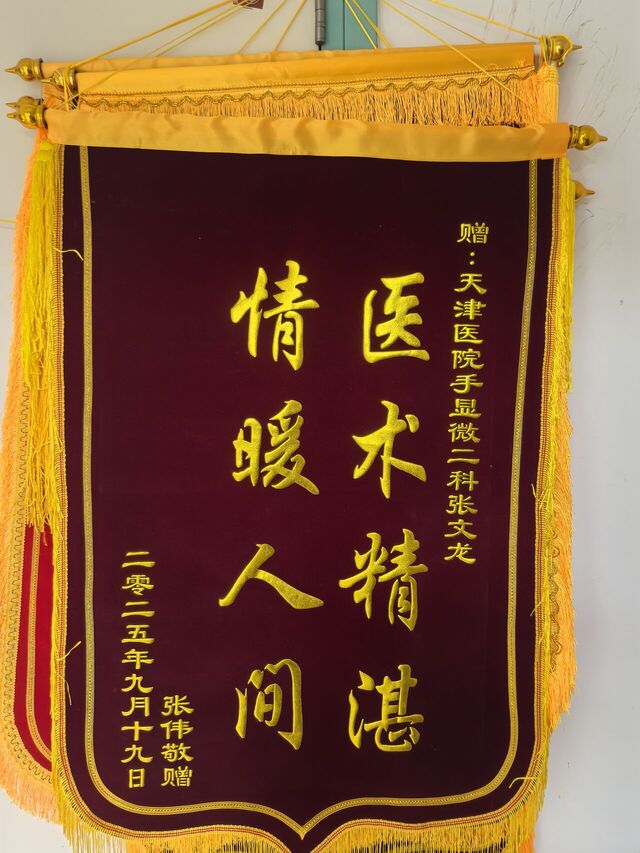 赠：天津医院手显微二科张文龙
医术精湛
情暖人间
张伟敬赠
二零二五年九月十九日